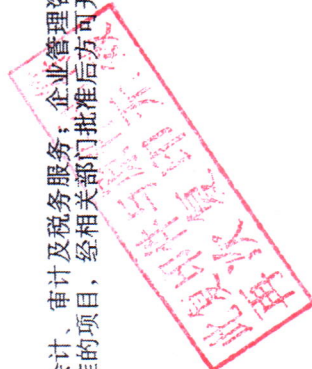 计、审计及税务服务；企业管理
的项目，经相关部门批准后方可
此复印件与
再次复印无